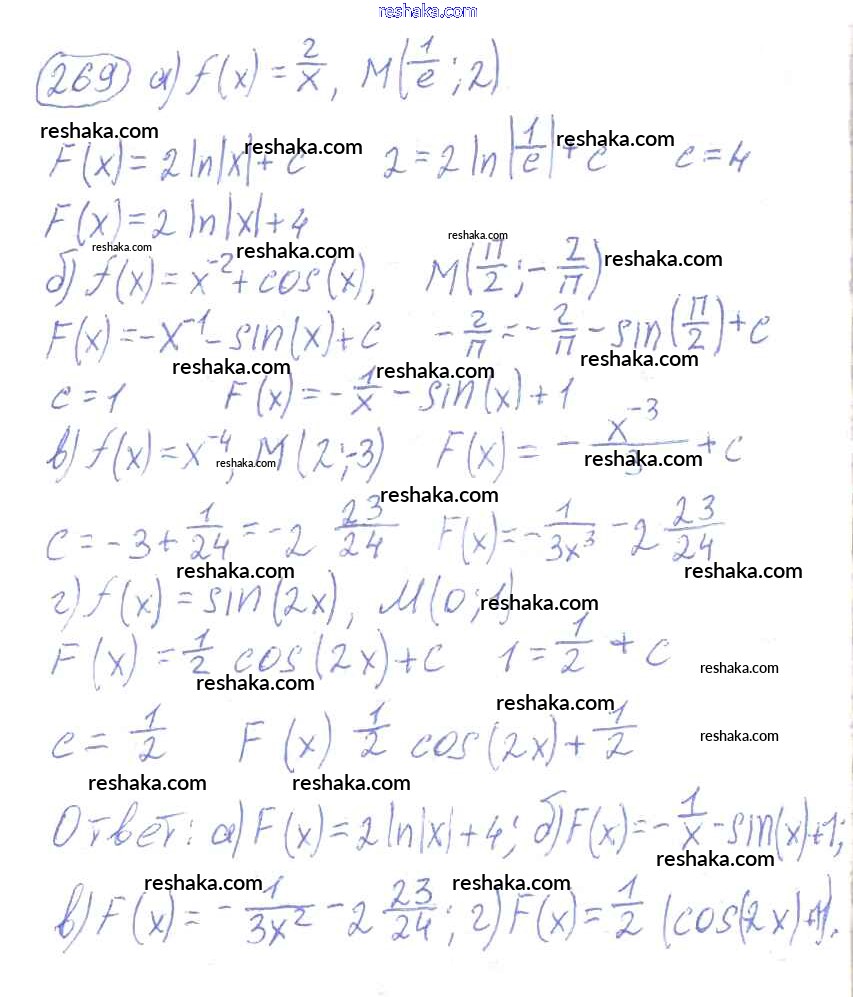 reshaka.com
269 а) f(x) = 2/x, M(1/e; 2)
reshaka.com reshaka.com reshaka.com
F(x) = 2 ln|x| + c 2 = 2 ln|1/e| + c c = 4
F(x) = 2 ln|x| + 4
reshaka.com reshaka.com reshaka.com reshaka.com
б) f(x) = x^-2 + cos(x), M(π/2; -2/π)
F(x) = -x^-1 - sin(x) + c -2/π = -2/π - sin(π/2) + c
reshaka.com reshaka.com reshaka.com
c = 1 F(x) = -1/x - sin(x) + 1
в) f(x) = x^-4, M(2; -3) F(x) = -x^-3/3 + c
reshaka.com reshaka.com
reshaka.com
c = -3 + 1/24 = -2 23/24 F(x) = -1/3x^3 - 2 23/24
reshaka.com reshaka.com
г) f(x) = sin(2x), M(0; 1)
reshaka.com
F(x) = 1/2 cos(2x) + c 1 = 1/2 + c
reshaka.com reshaka.com
reshaka.com
c = 1/2 F(x) 1/2 cos(2x) + 1/2
reshaka.com
reshaka.com reshaka.com
Ответ: а) F(x) = 2 ln|x| + 4; б) F(x) = -1/x - sin(x) + 1;
reshaka.com
reshaka.com reshaka.com
в) F(x) = -1/3x^2 - 2 23/24; г) F(x) = 1/2 (cos(2x) + 1).